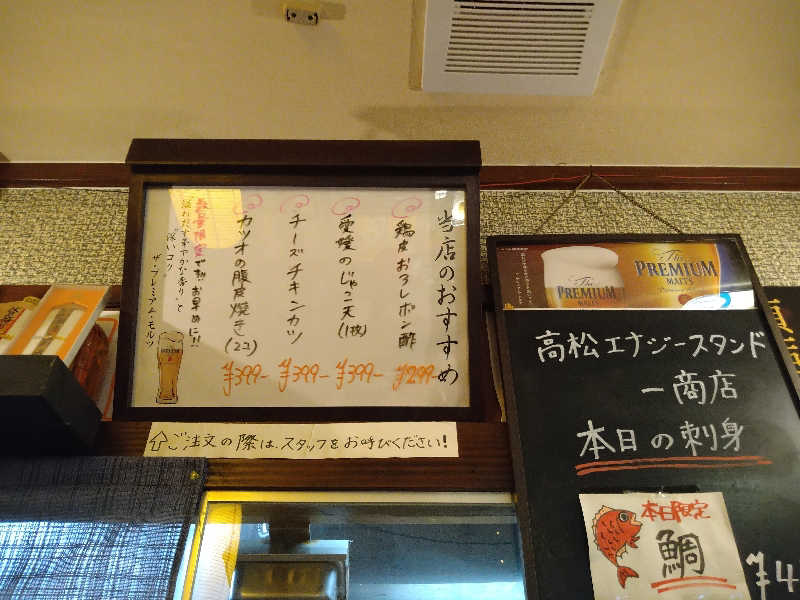 当店のおすすめ
鶏皮おろしポン酢 ¥299-
愛媛のじゃこ天(1枚) ¥399-
チーズチキンカツ ¥399-
カツオの腹皮焼き(2コ) ¥399-
数量限定です!! お早めに!!
溢れだす華やかな香りと
"深いコク"
ザ・プレミアム・モルツ
⇧ご注文の際は、スタッフをお呼びください!
The
PREMIUM
MALT'S
The
PREMIUM
MALT'S
高松エナジースタンド
一商店
本日の刺身
本日限定
鯛
¥4